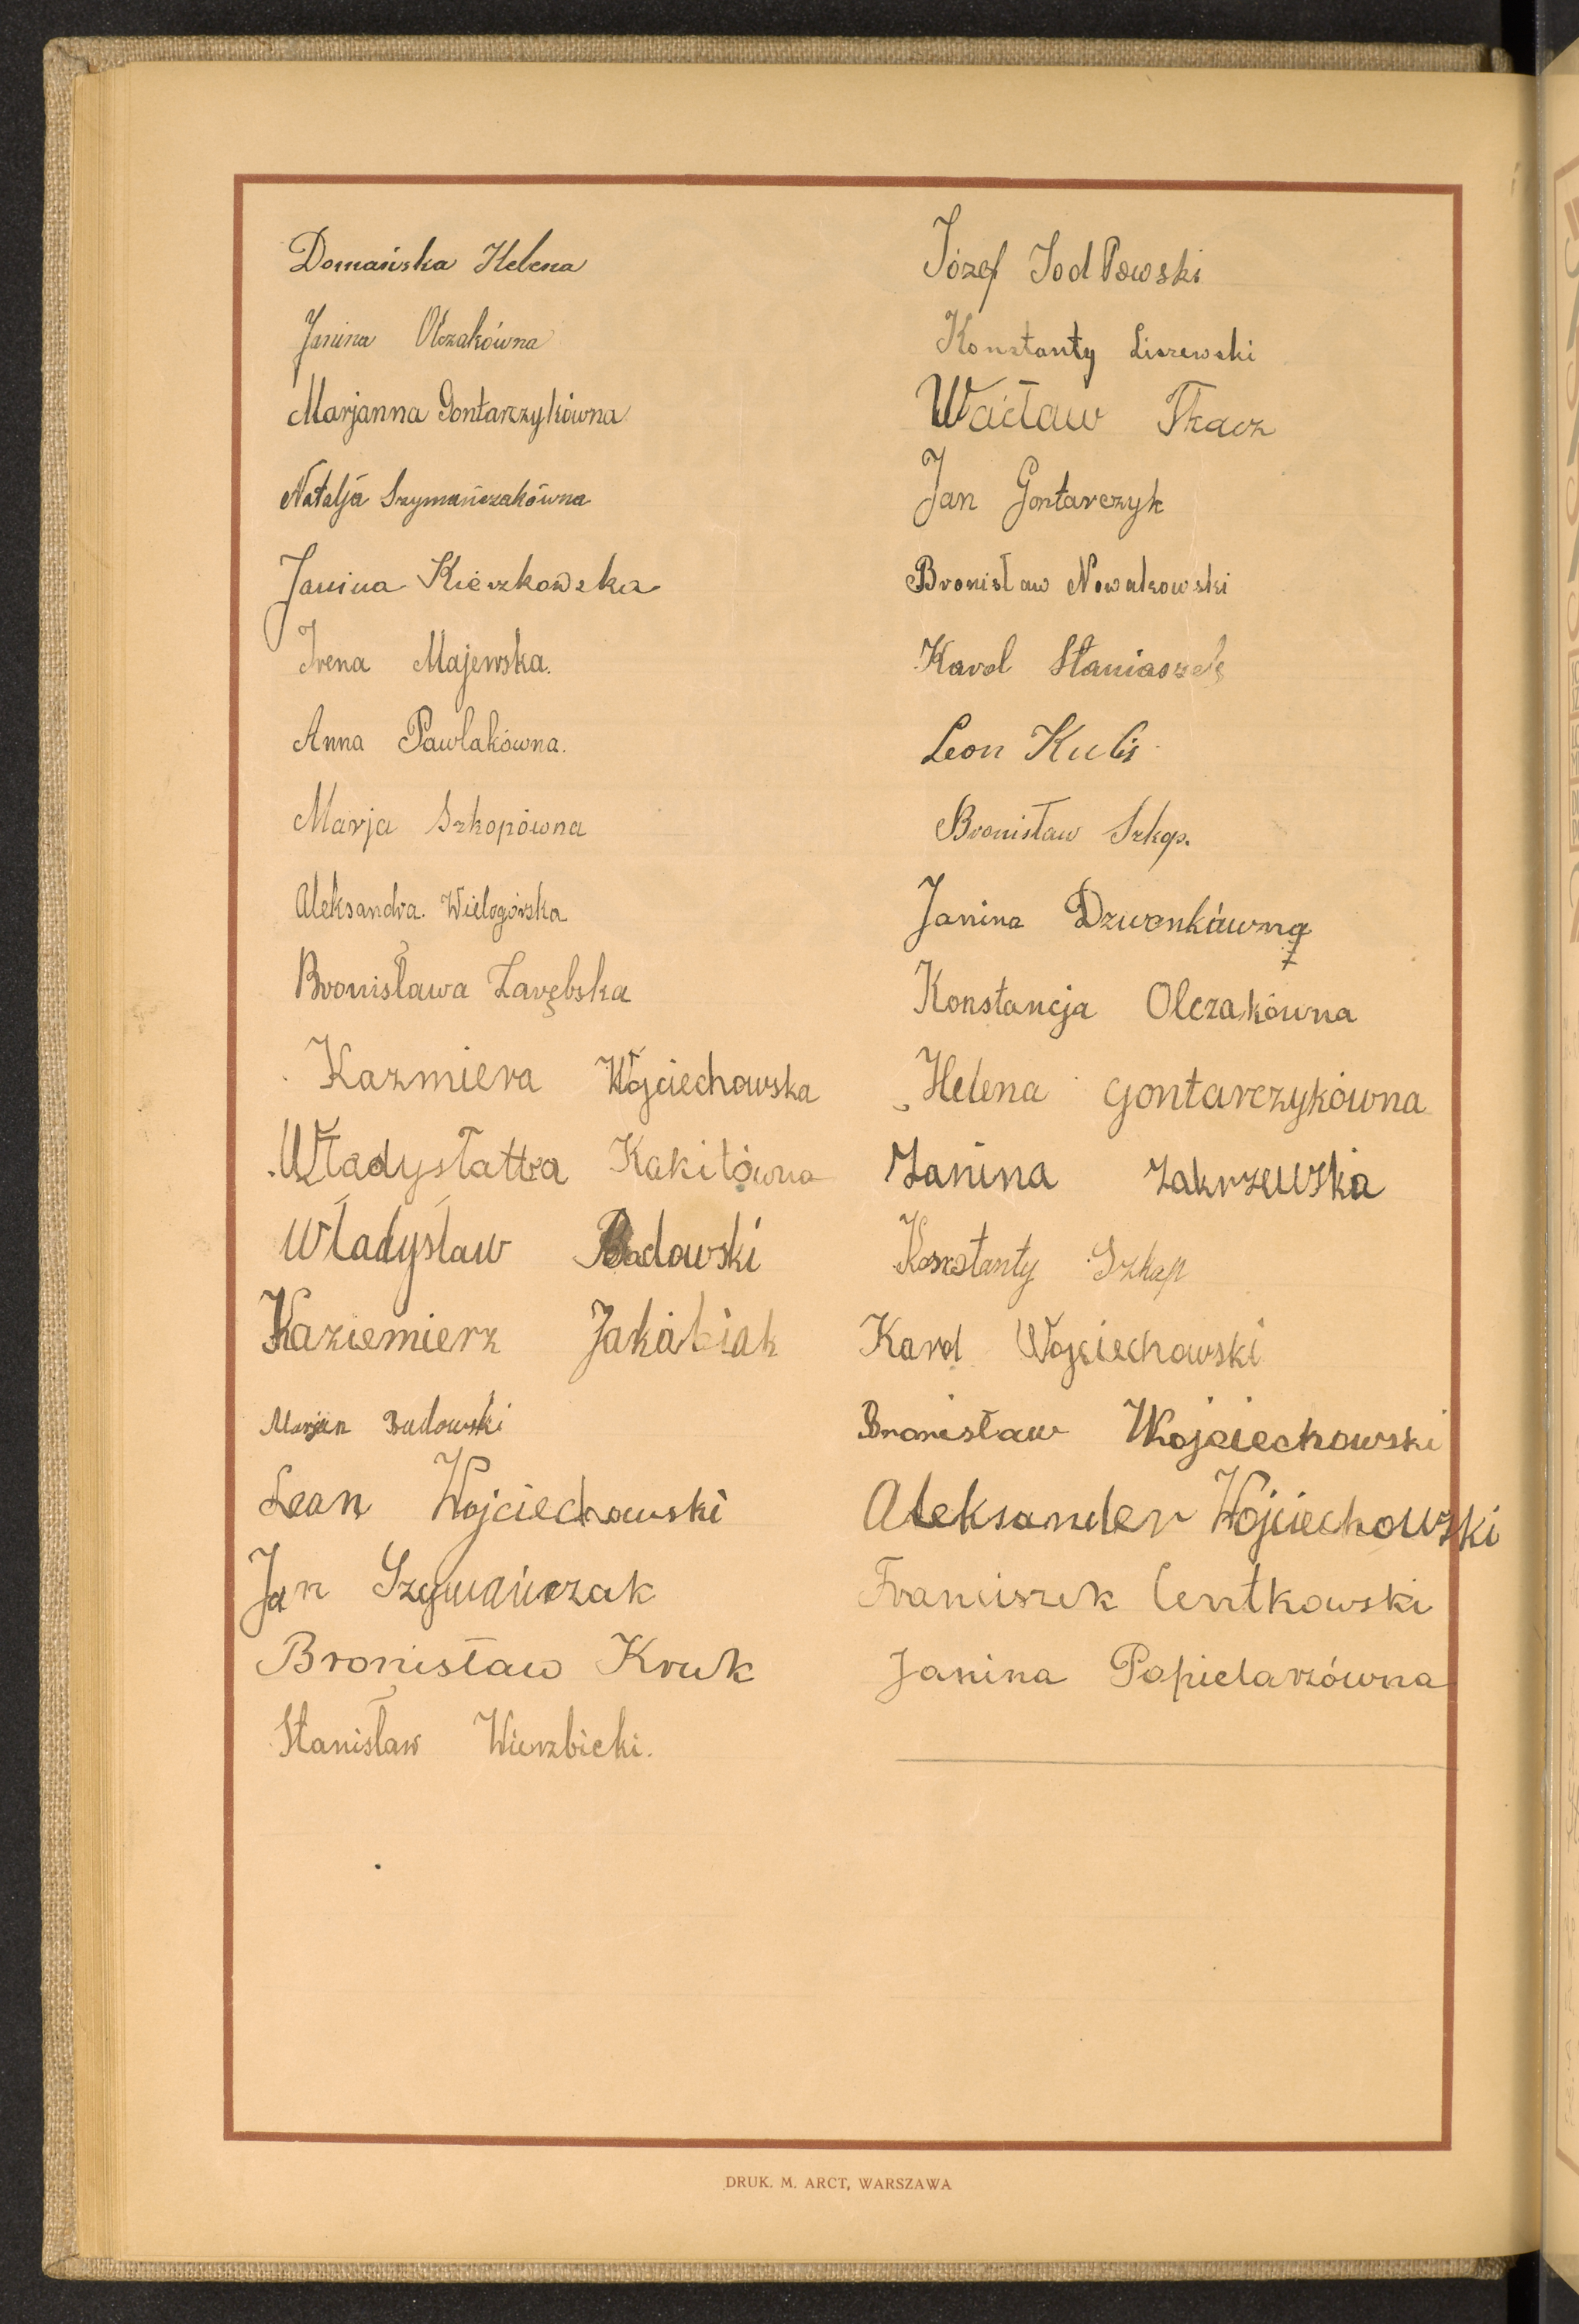 Domańska Helena
Janina Olczakówna
Marjanna Gontarzykówna
Natalja Szymańczakówna
Janina Kieszkowska
Irena Majewska.
Anna Pawlakówna.
Marja Szkopówna
Aleksandra. Wielogórska
Bronisława Zarębska
Kazmiera Wójciechowska
Władysława Kakitówna
Władysław Badowski
Kaziemierz Jakóbiak
Marjan Budowski
Leon Wojciechowski
Jan Szymańczak
Bronisław Kruk
Stanisław Wierzbicki.
Józef Jodłowski
Konstanty Liszewski
Wacław Tkacz
Jan Gontarczyk
Bronisław Nowakowski
Karol Staniaszek
Leon Kulis
Bronisław Szkop.
Janina Dzwonkówna
Konstancja Olczakówna
Helena Gontarczykówna
Janina Zakrzewska
Konstanty Szkop
Karol Wojciechowski
Bronisław Wojciechowski
Aleksander Wojciechowski
Franciszek Centkowski
Janina Popielarzówna
DRUK. M. ARCT, WARSZAWA